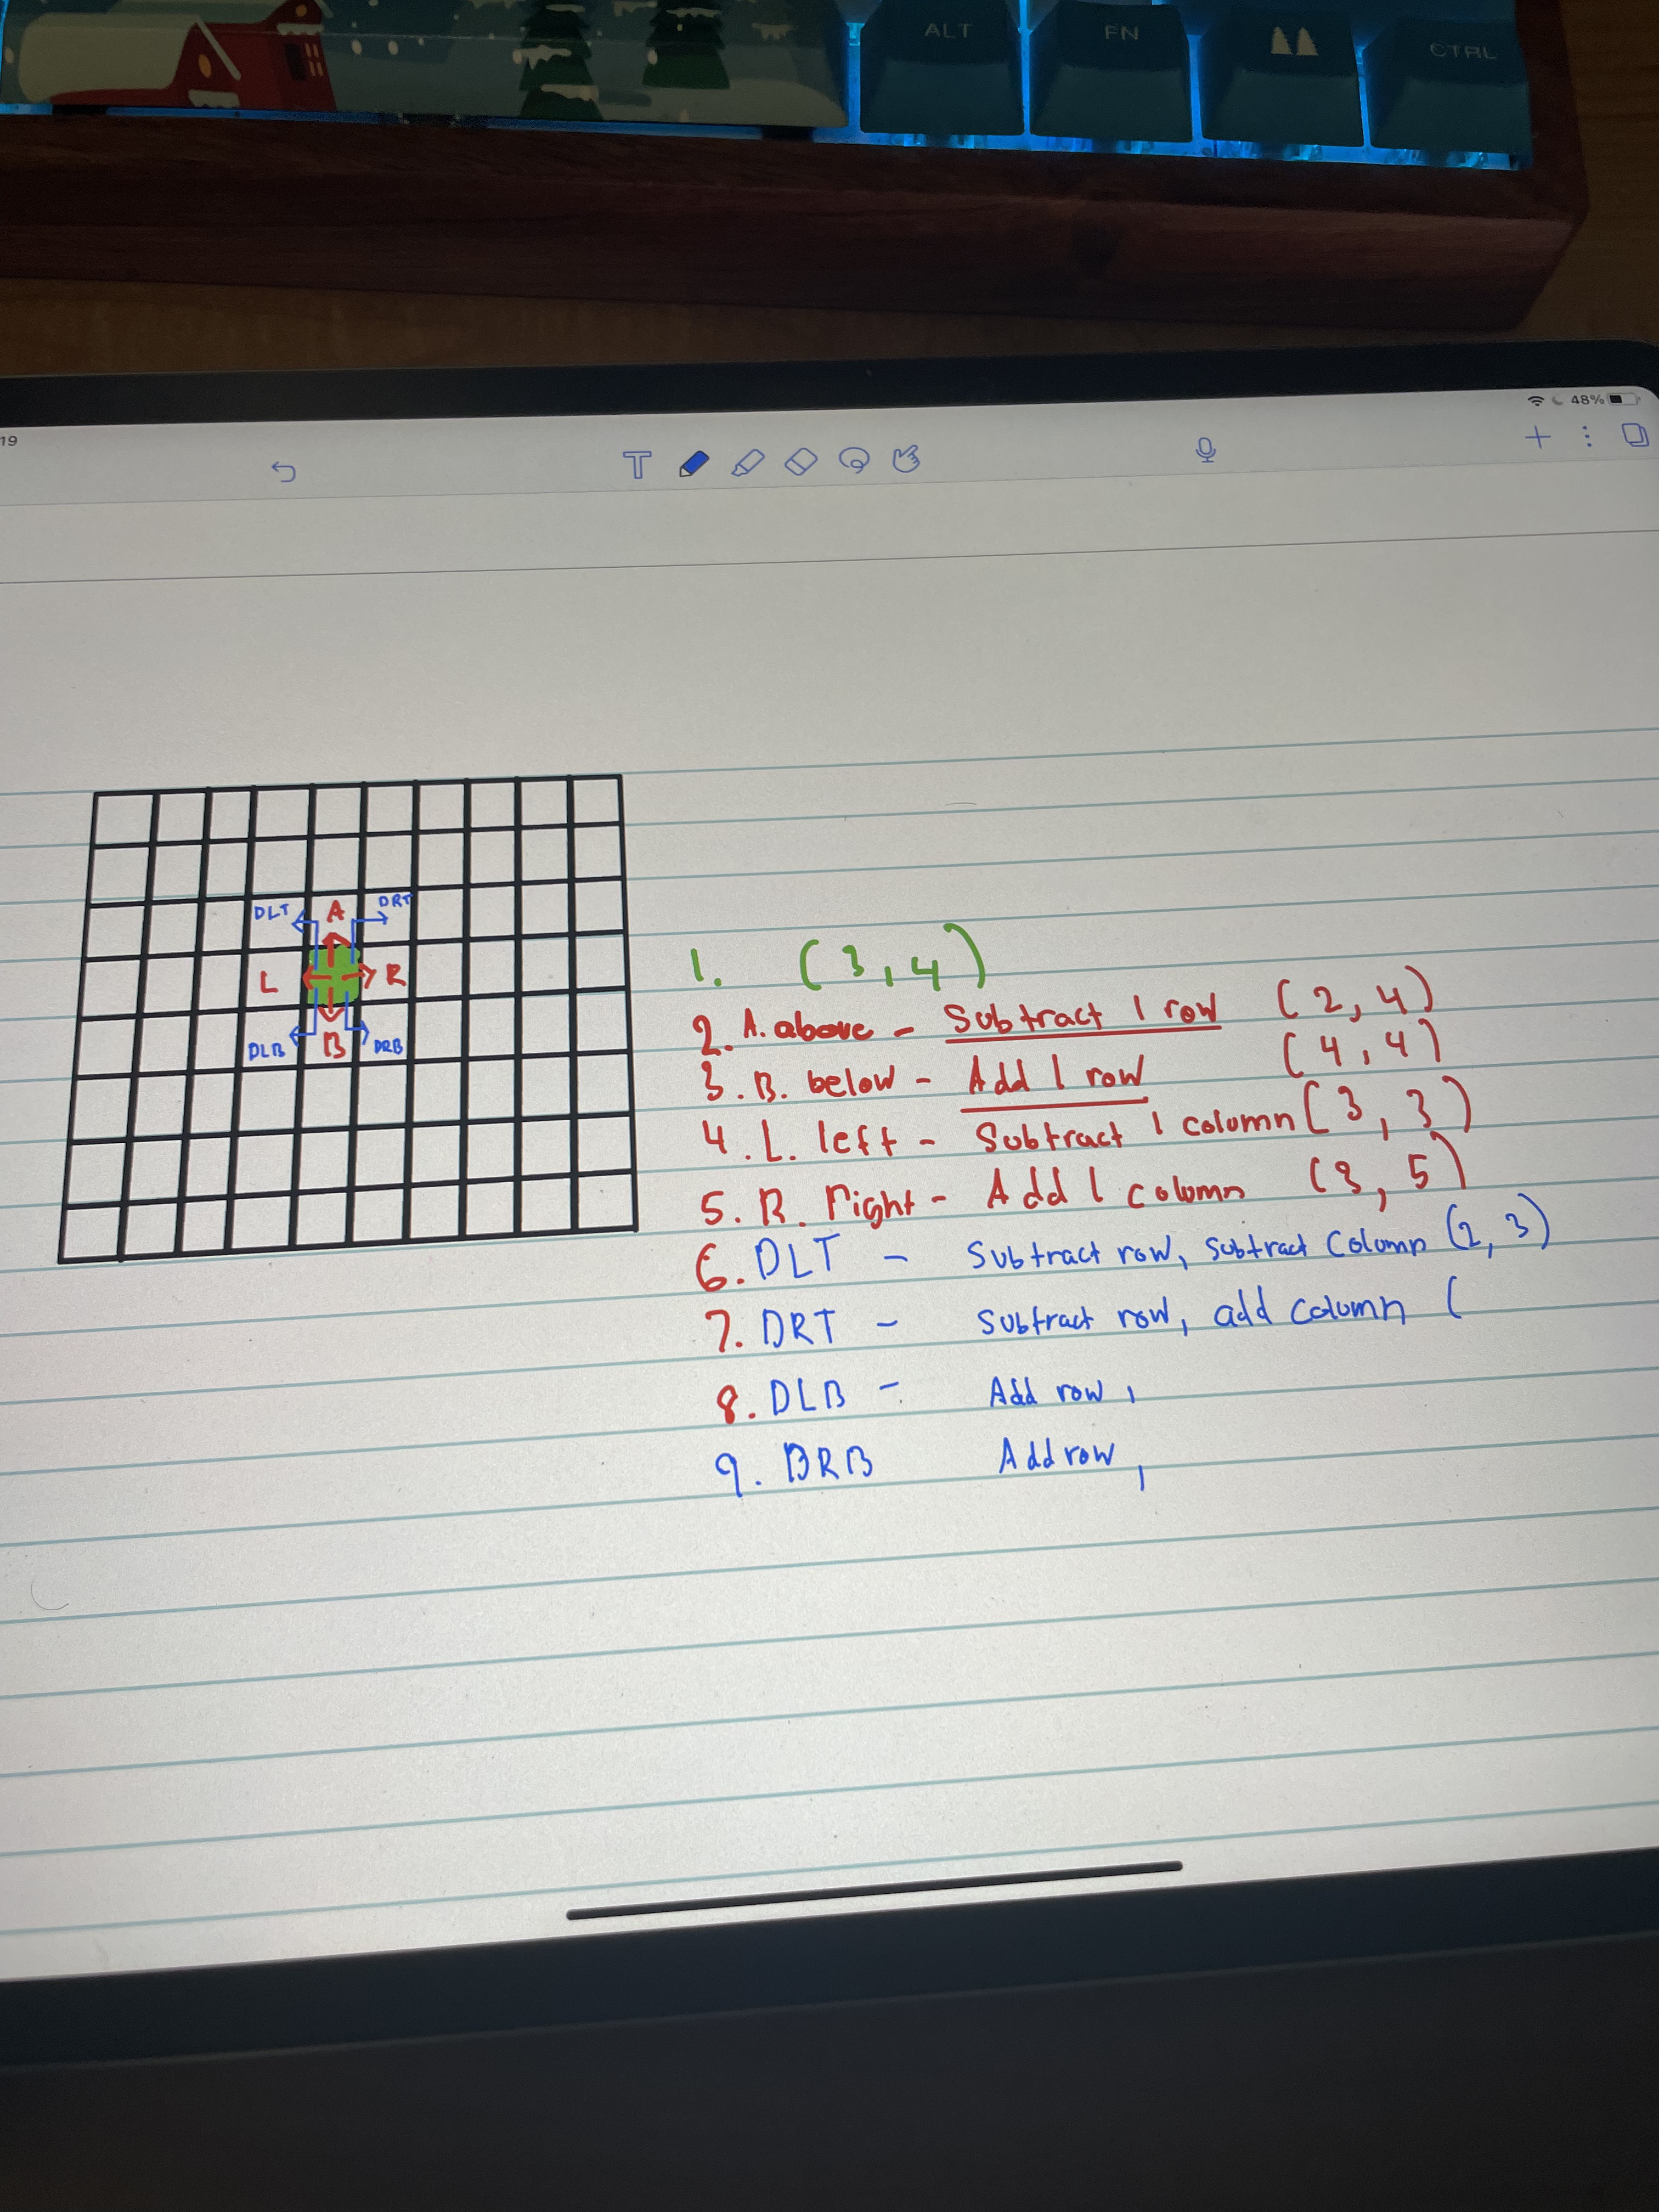 ALT FN CTRL
19 48%
T
DLT A DRT
L R
DLB B DRB
1. (3,4)
2. A. above - Subtract 1 row (2,4)
3. B. below - Add 1 row (4,4)
4. L. left - Subtract 1 column (3,3)
5. R. Right - Add 1 column (3,5)
6. DLT - Subtract row, subtract column (2,3)
7. DRT - Subtract row, add column (
8. DLB - Add row,
9. DRB Add row,